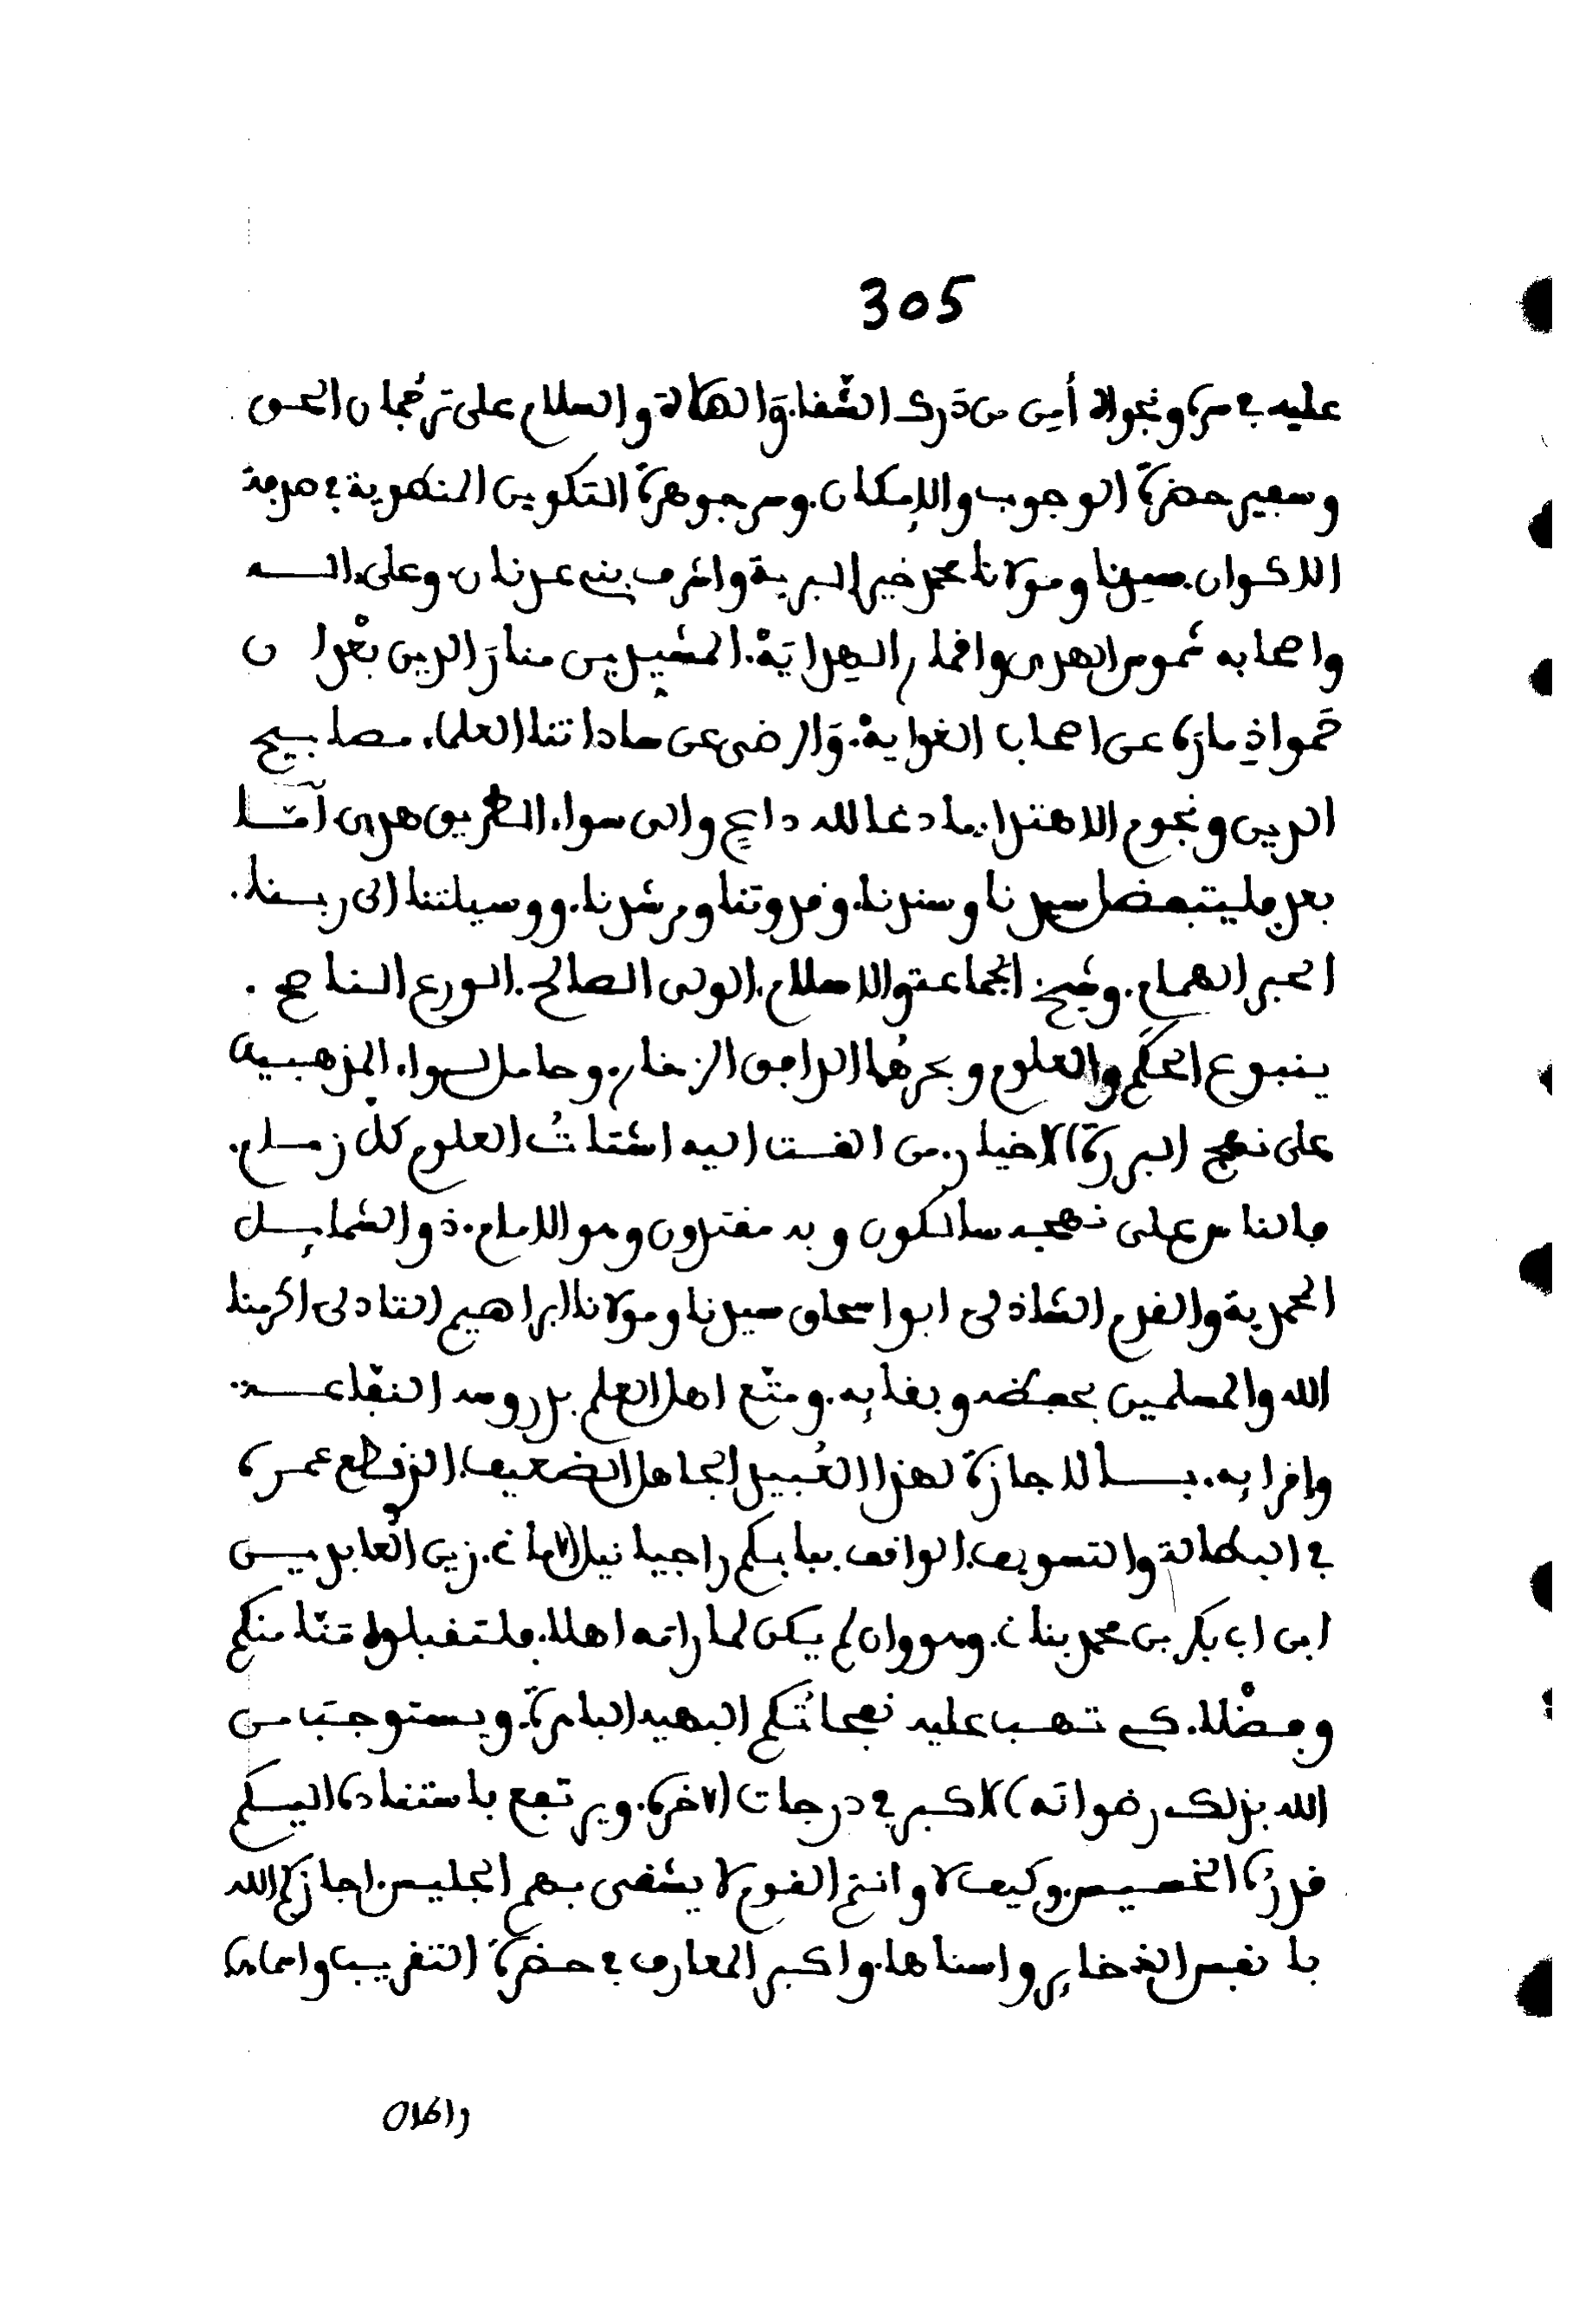 305
عليه في سره ونجواه أمن من دَرك الشّقا. وَالصلاة والسلام على ترجُمان الحق
وسفير حضرة الوجوب والإمكان. وسر جوهرة التكوين المنطوية في صدفة
الاكوان. سيدنا ومولانا محمد خير البرية واشرف بني عدنان. وعلى اله
واصحابه شموس الهدى واقمار الهِدايَةْ. المشيدين منارَ الدين بعْد ان
حَموا ذِماره عن اصحاب الغوايةْ. وَالرضى عن ساداتنا العلماء مصابيح
الدين ونجوم الاهتداء. ما دعا لله داعٍ والى سواء الطريق هدى. أمّا
بعد فليتفضل سيدنا وسندنا. وقدوتنا ومرشدنا. ووسيلتنا الى ربنا.
الحبر الهمام. وشيخ الجماعة والاسلام. الولي الصالح. الورع الناصح.
ينبوع الحكَم والعلوم وبحرهُا الدافق الزخار. وحامل لواء المذهبين
على نهج البررة الاخيار. من القت اليه اشتاتُ العلوم كلّ زمام.
فالناس على نهجه سالكون وبه مقتدون وهو الامام. ذو الشمايل
المحمدية والقدم الشاذلي ابو اسحاق سيدنا ومولانا ابراهيم التادلي اكرمنا
الله والمسلمين بحفظه وبقايه. ومتّع اهل العلم بدروسه النفاعة
واقرايه. بالاجازة لهذا العُبيد الجاهل الضعيف. الذي قطع عمره
في البطالة والتسويف. الواقف ببابكم راجيا نيل الامان. زين العابدين
ابن ابي بكر بن محمد بنان. وهو وان لم يكن لما رامه اهلا. فلتقبلوه مَنّا منكم
وفضْلا. كي تهب عليه نفحاتُكم البهيه الباهرة. ويستوجبَ من
الله بذلك رضوانه الاكبر في درجات الاخرة. ويرتفع باستناده اليكم
قدرُه الخسيس. وكيف لا وانتم القوم لا يشقى بهم الجليس. اجازكم الله
بانفس الذخاير واسناها. واكبر المعارف في حضرة التقريب واسماها
والصلاة